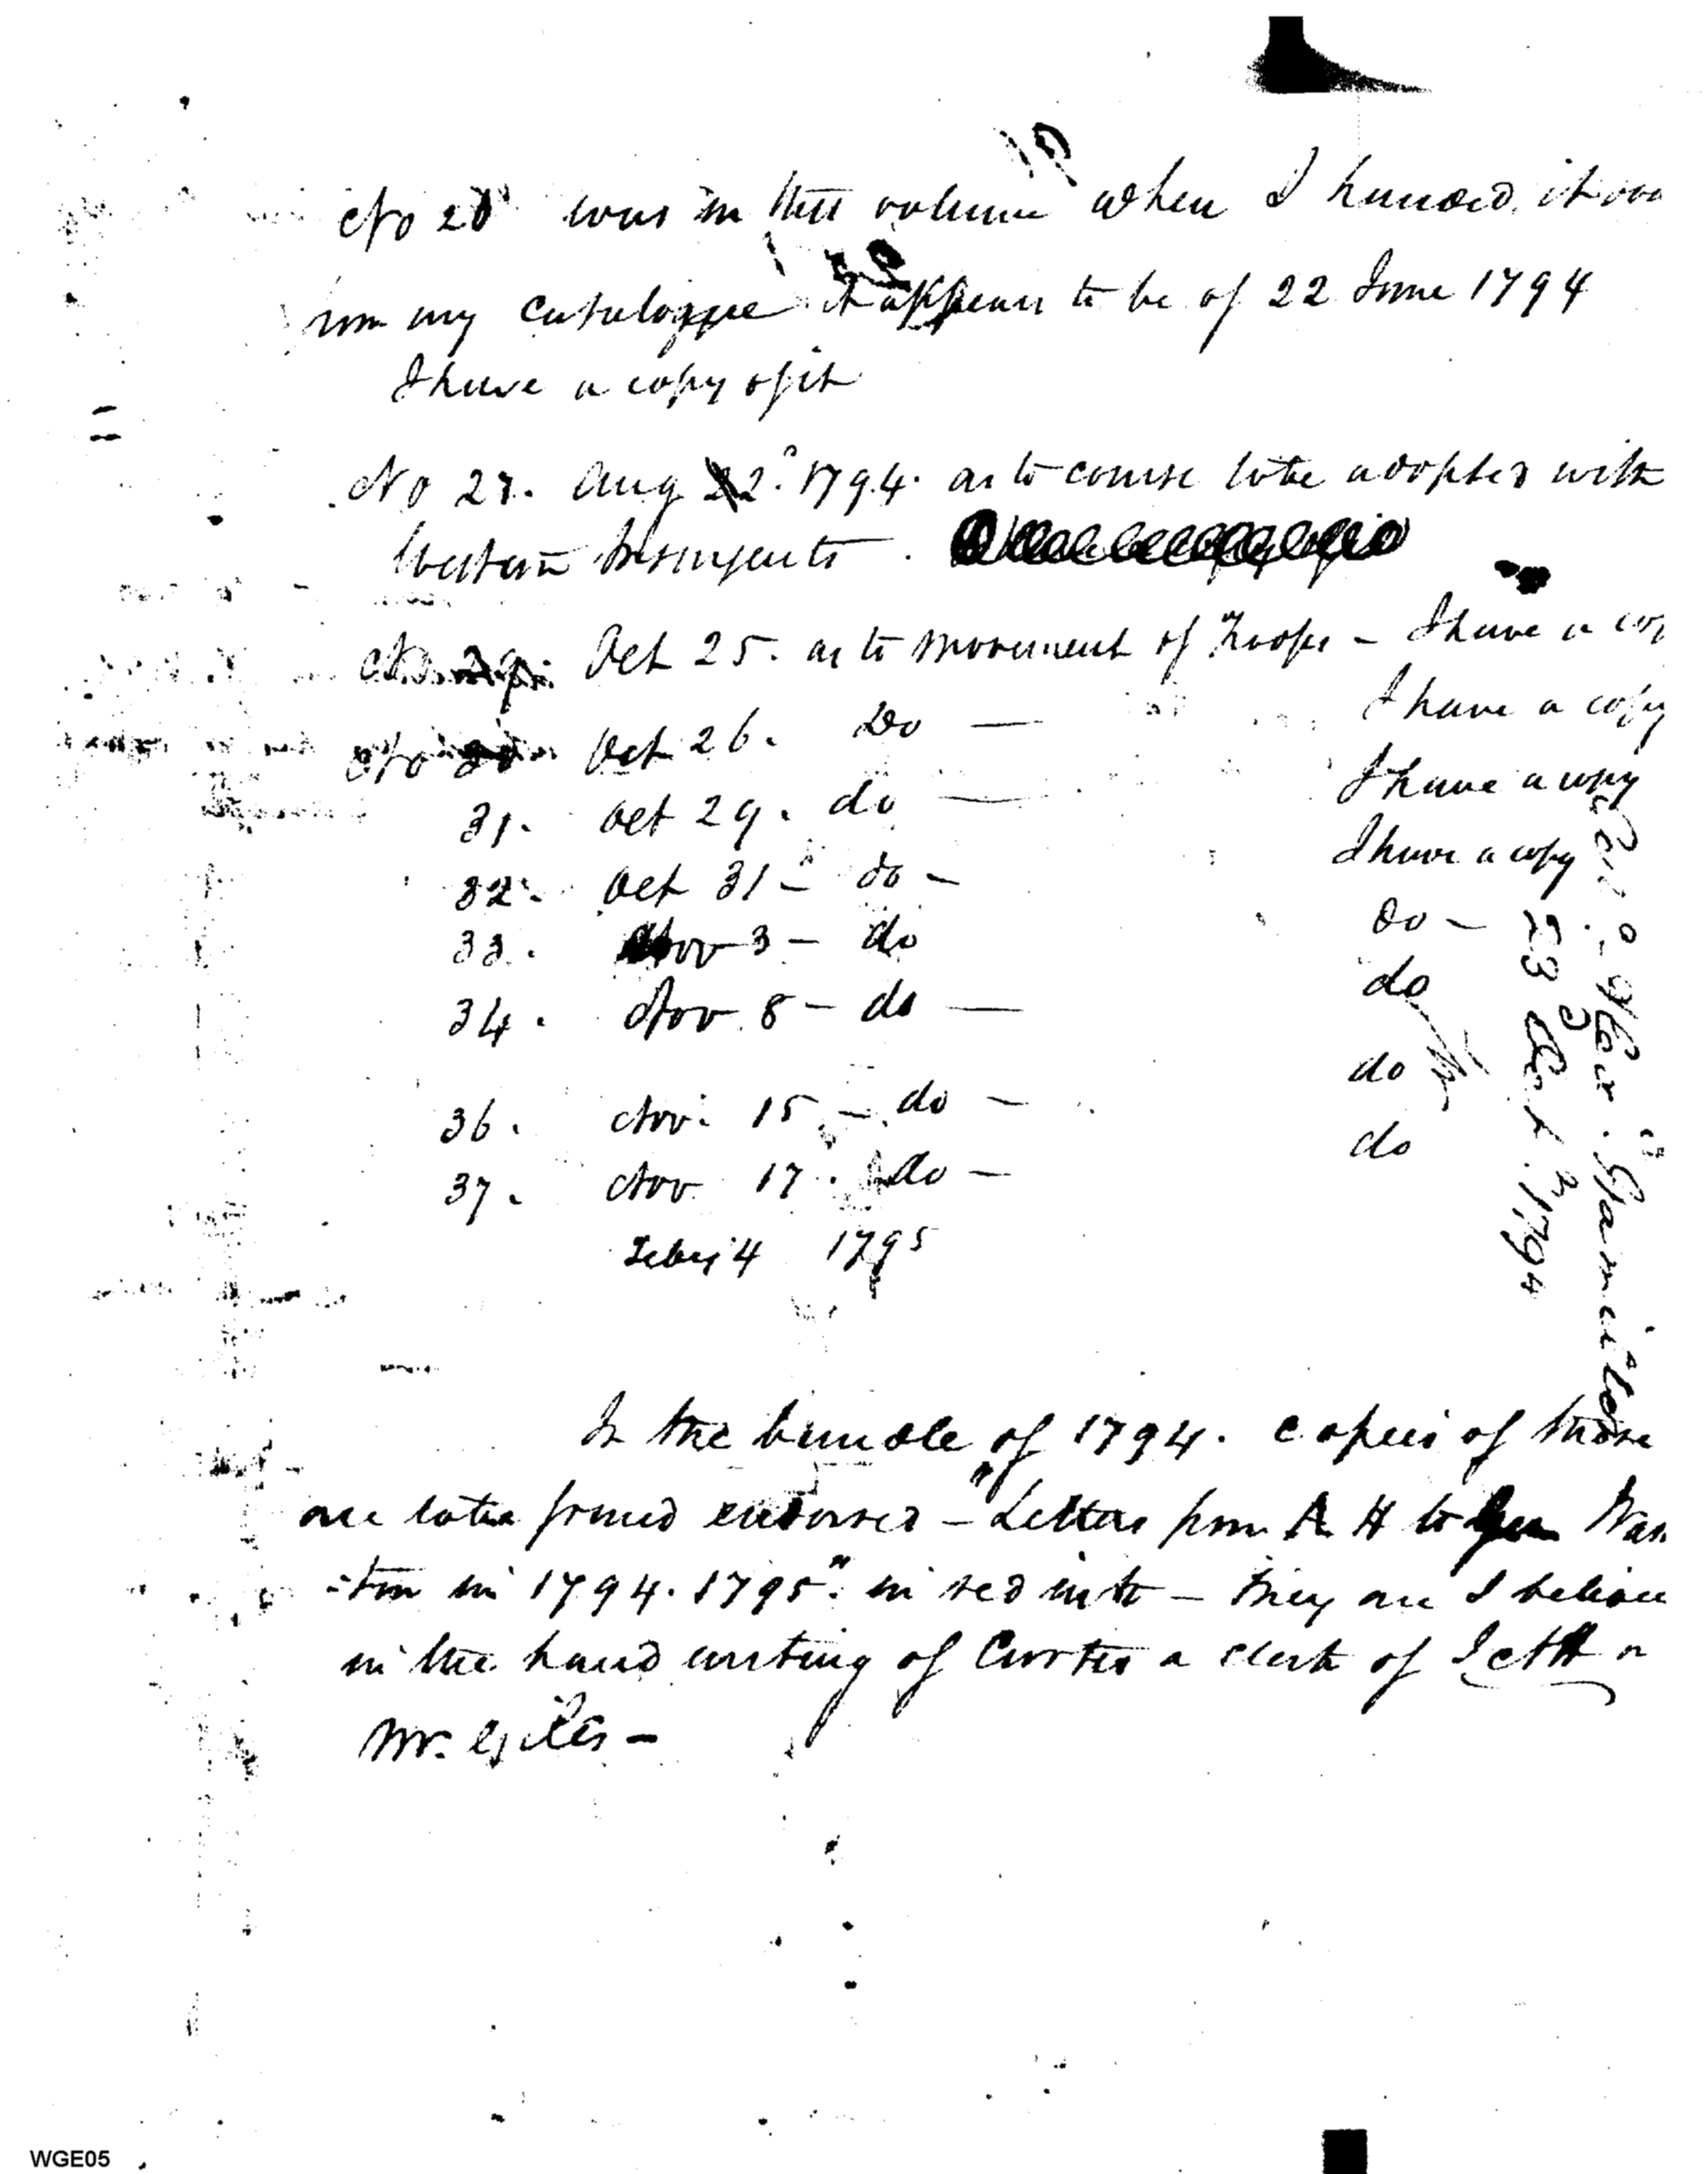 No 20 was in this volume when I handed it
from my catalogue it appears to be of 22 June 1794
I have a copy of it
No 27. Aug 2. 1794. as to course to be adopted with
Western Insurgents.
No 29. Oct 25. as to movement of Troops – I have a cop
No 30 Oct 26. Do — I have a copy
31. Oct 29. do — I have a copy
32. Oct 31 – do – I have a copy
33. Nov 3 – do do –
34. Nov. 8 – do — do
36. Nov. 15 – do – do
37. Nov 17. do – do
Feby 4 1795
23 Oct. 1794
In the bundle of 1794. copies of these
are to be found endorsed – "Letters from A H to Gen Was
-ton in 1794. 1795". in red ink – They are I believe
in the hand writing of Curtis a clerk of
Mr. Giles –
WGE05